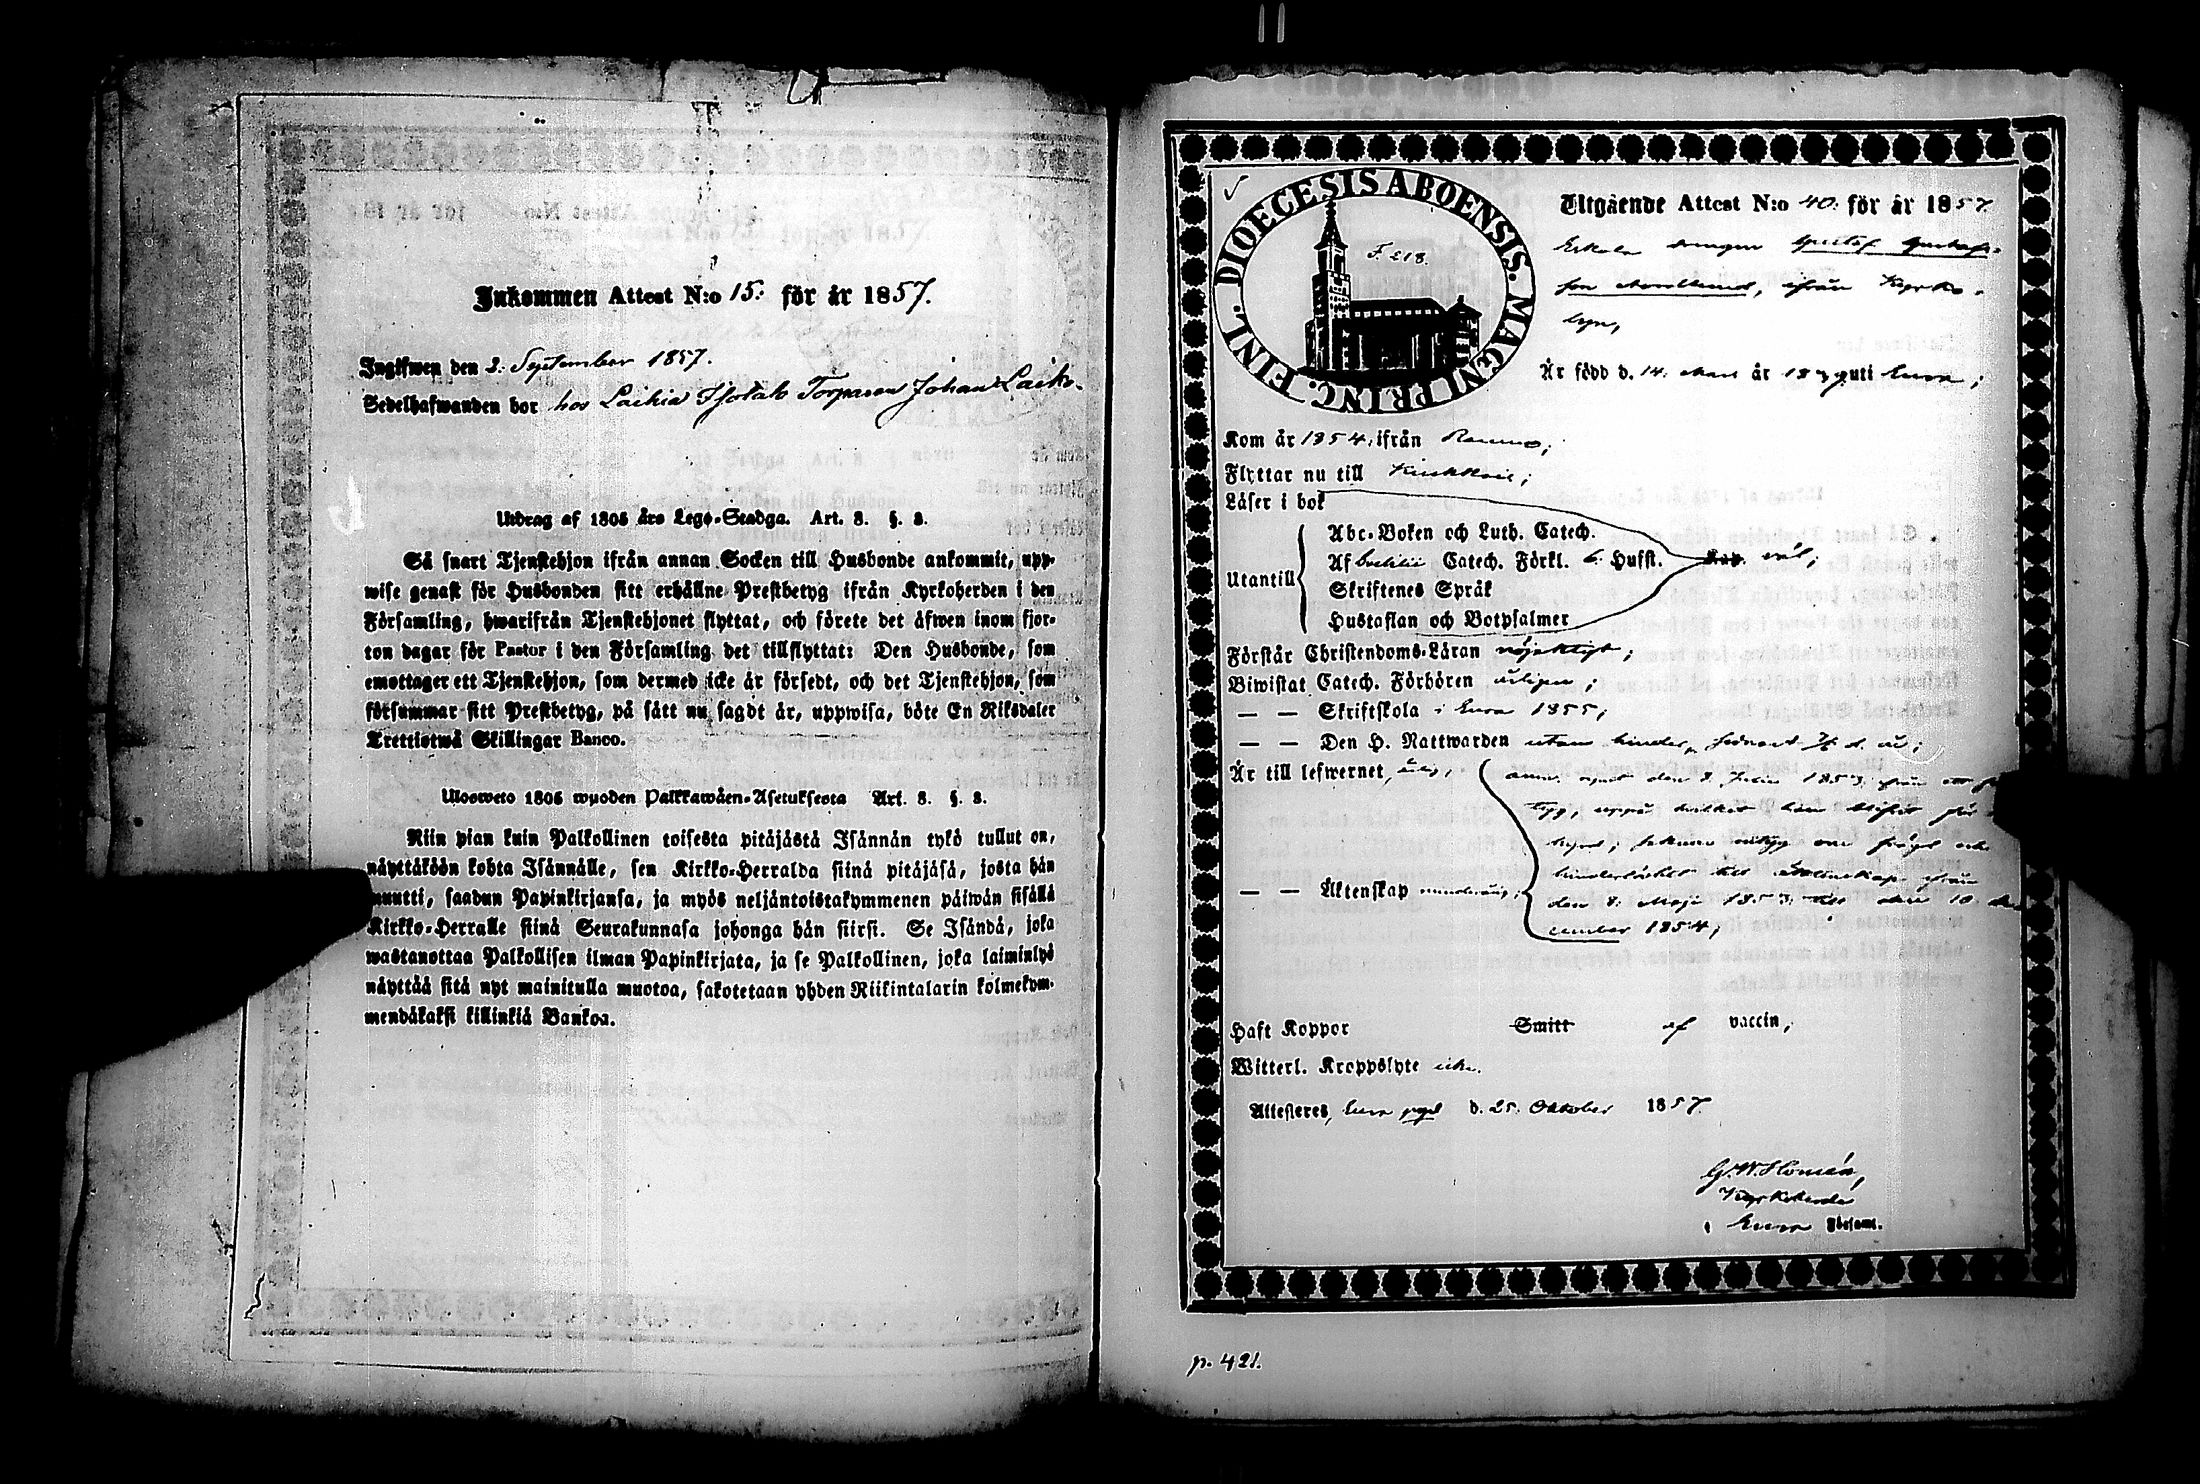 Inkommen Attest N:o 15. för år 1857.
Ingifwen den 3. September 1857.
Sedelhafwanden bor hos Laihia Isotalo Torparen Johan Laiko-
Utdrag af 1805 års Lego-Stadga. Art. 3. §. 3.
Så snart Tjenstehjon ifrån annan Socken till Husbonde ankommit, upp-
wise genast för Husbonden sitt erhållne Prestbetyg ifrån Kyrkoherden i den
Församling, hwarifrån Tjenstehjonet flyttat, och förete det äfwen inom fjor-
ton dagar för Pastor i den Församling det tillflyttat: Den Husbonde, som
emottager ett Tjenstehjon, som dermed icke är försedt, och det Tjenstehjon, som
försummar sitt Prestbetyg, på sätt nu sagdt är, uppwisa, böte En Riksdaler
Trettiotwå Skillingar Banco.
Ulosweto 1805 wuoden Palkkawäen-Asetuksesta Art. 3. §. 3.
Niin pian kuin Palkollinen toisesta pitäjästä Isännän tykö tullut on,
näyttäköön kohta Isännälle, sen Kirkko-Herralda siinä pitäjäsä, josta hän
muutti, saadun Papinkirjansa, ja myös neljäntoistakymmenen päiwän sisällä
Kirkko-Herralle siinä Seurakunnasa johonga hän siirsi. Se Isändä, joka
wastanottaa Palkollisen ilman Papinkirjata, ja se Palkollinen, joka laiminlyö
näyttää sitä nyt mainitulla muotoa, sakotetaan yhden Riikintalarin kolmekym-
mendäkaksi killinkiä Bankoa.
DIOECESIS ABOENSIS. MAGNI PRINC. FINL.
F. 218.
Utgående Attest N:o 40. för år 1857.
drengen Gustaf Gustafs-
son Nordlund, ifrån Kyrko-
byn,
Är född d. 14. år 18 uti Eura;
Kom år 1854. ifrån Raumo;
Flyttar nu till
Läser i bok
Utantill
Abc-Boken och Luth. Catech.
Af Catech. Förkl. Husst. Kap. väl;
Skriftenes Språk
Hustaflan och Botpsalmer
Förstår Christendoms-Läran nöjaktigt;
Biwistat Catech. Förhören årligen;
— — Skriftskola i Eura 1855;
— — Den H. Nattwarden utan hinder, d. å;
Är till lefwernet, ärlig;
den 8. 1853, från ett
uppå hwilket han blifvit för
om frägd och
hinderlöshet till Ägtenskap ifrån
— — Äktenskap
den 8. Maji 1853 till den 10. De-
cember 1854;
Haft Koppor Smitt af vaccin;
Witterl. Kroppslyte icke.
Attesteras, Eura pgd d. 25. Oktober 1857.
G. W. Homén,
Kyrkoherde
i Eura Församl.
p. 421.